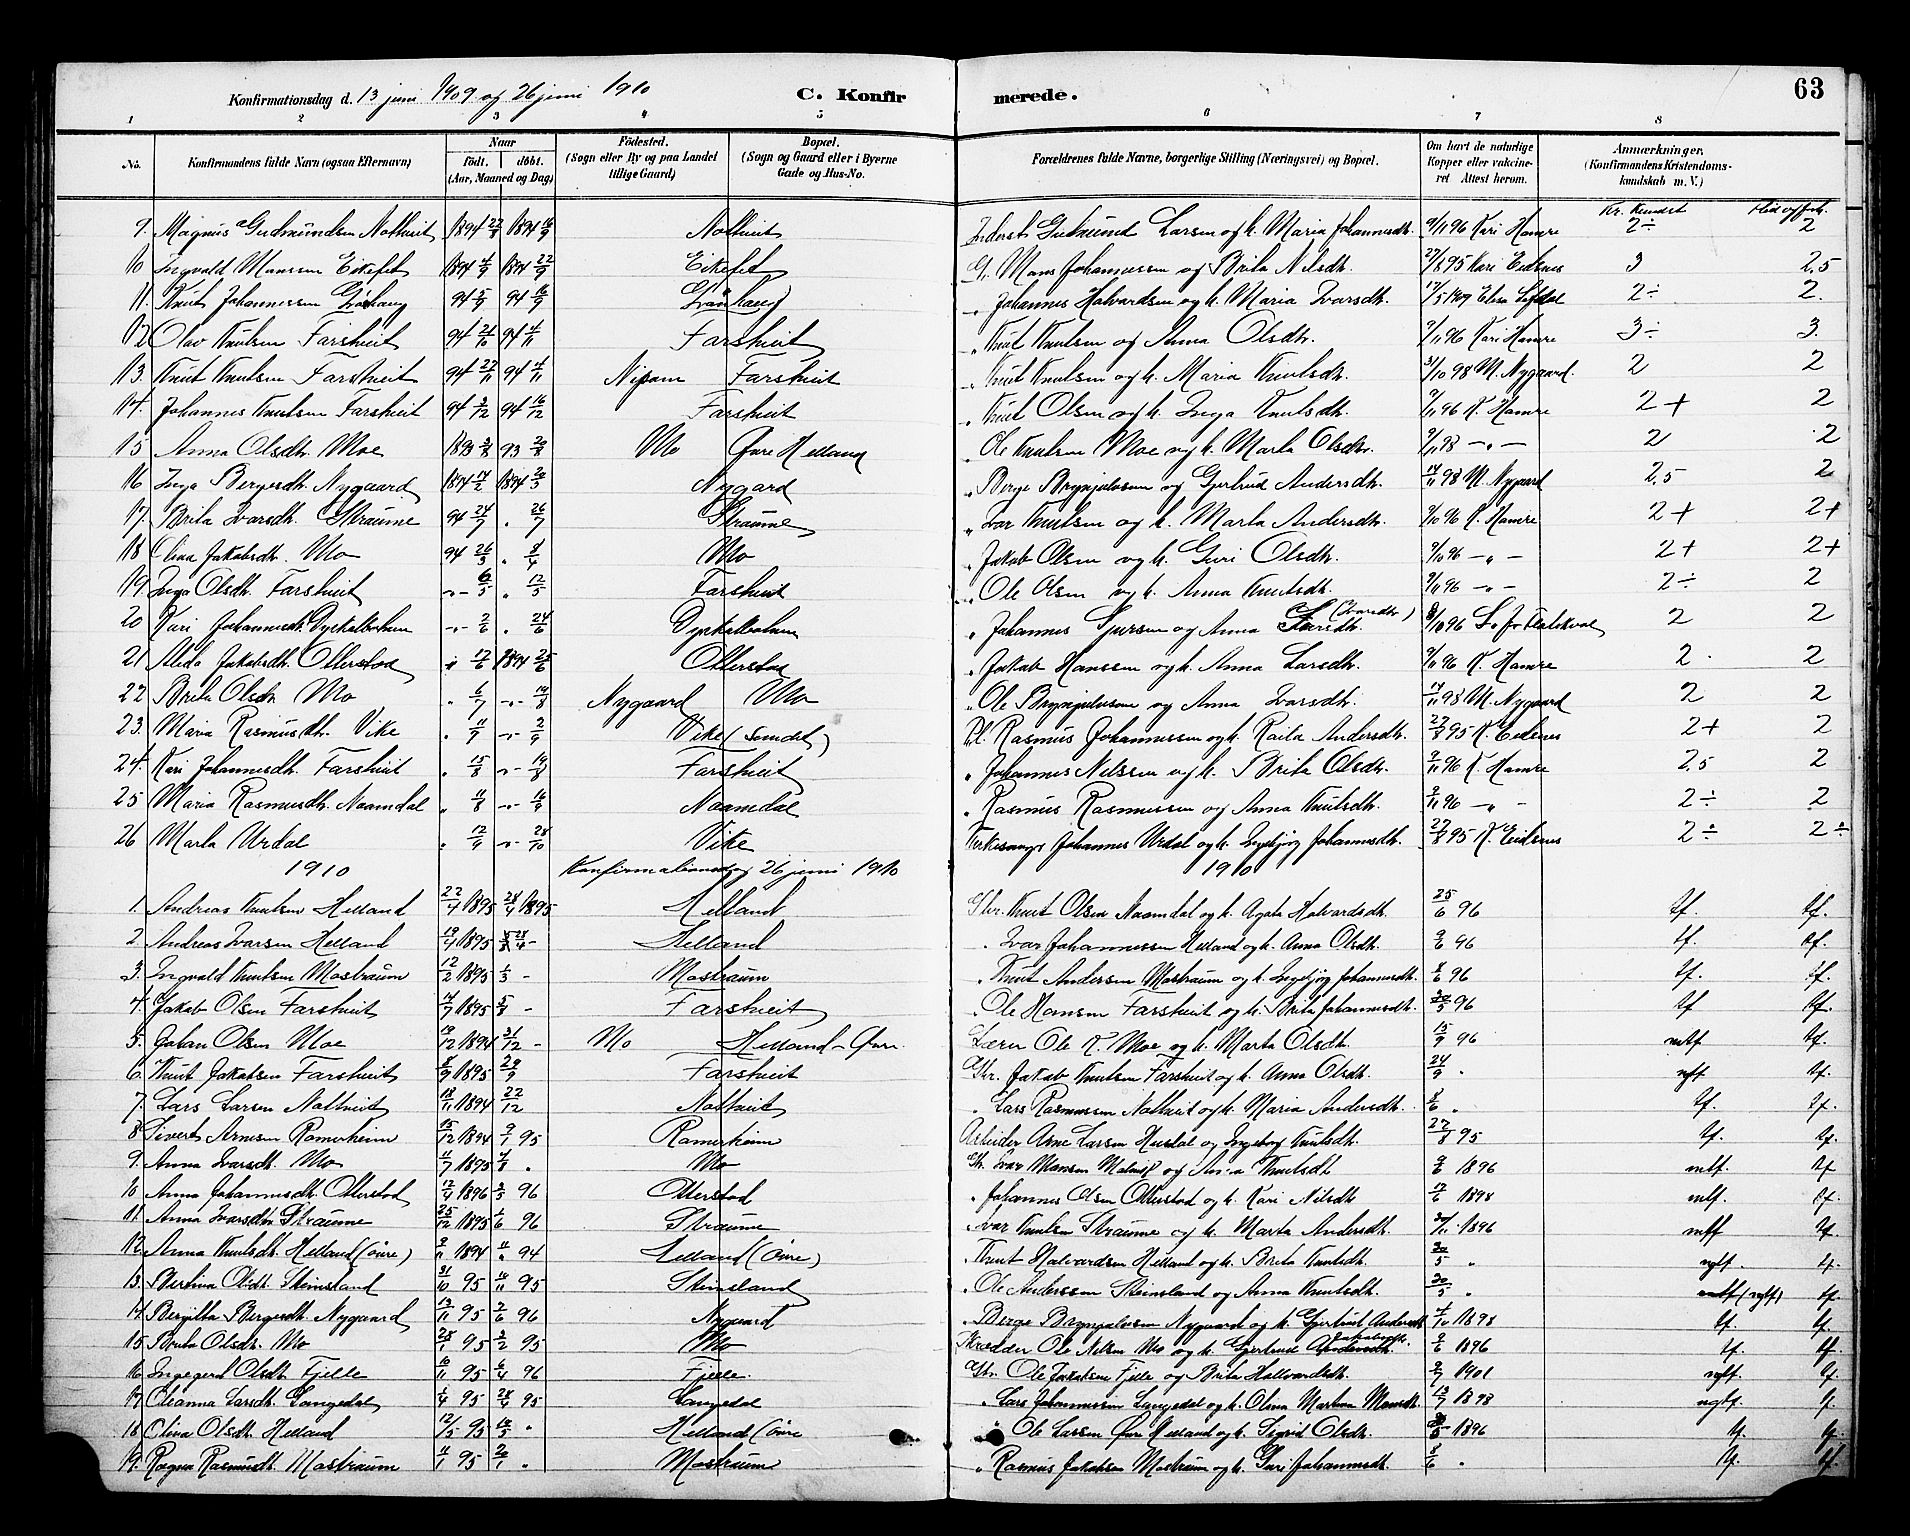 Konfirmationsdag d. 13 juni 1909 og 26 juni 1910 C. Konfirmerede. 63
1 2 3 4 5 6 7 8
No. Konfirmandens fulde Navn (ogsaa Efternavn) Naar født. døbt. (Aar, Maaned og Dag) Fødested. (Sogn eller By og paa Landet tillige Gaard) Bopæl. (Sogn og Gaard eller i Byerne Gade og Hus-No. Forældrenes fulde Navne, borgerlige Stilling (Næringsvei) og Bopæl. Om havt de naturlige Kopper eller vakcineret Attest herom. Anmærkninger, (Konfirmandens Kristendomskundskab m. V.)
Kr. Kundsk
9. Magnus Gudmundsen Notthveit 1894 1894 16/9 Notthveit Inderst Gudmund Larsen og h. Maria Johannesdtr. 9/11 96 Kari Hamre 2÷ 2
10 Ingvald Monssen Eikefet 1894 4/9 1894 22/9 Eikefet G. Mons Johannessen og Brita Nilsdtr. 27/8 95 Kari Eidsnes 3 2,5
11. Knut Johannessen 94 5/9 94 16/9 Johannes Halvardsen og h. Maria Ivarsdtr. 2÷ 2.
12 Olav Knutsen Farstveit 94 94 4/11 Farstveit „ Knut Knutsen og Anna Olsdtr. 9/11 96 Kari Hamre 3÷ 3.
13. Knut Knutsen Farstveit 94 94 Farstveit „ Knut Knutsen og h. Maria Knutsdtr. 31/10 98 M. Nygaard. 2 2
14. Johannes Knutsen Farstveit 94 2/12 94 16/12 Farstveit „ Knut Olsen og h. Inga Knutsdtr. 9/11 96 K. Hamre 2+ 2
15 Anna Olsdtr. Moe 1893 93 Mo Øvre Helland „ Ole Knutsen Moe og h. Marta Olsdtr. 9/11 98 – „ – 2 2
16 Inga Bergesdtr. Nygaard 1894 14/2 1894 Nygard „ Berge Brynjulvsen og Gjertrud Andersdtr. 14/11 98 M. Nygaard 2,5 2
17. Brita Ivarsdtr. Straume 94 24/7 „ 26/7 Straume „ Ivar Knutsen og h. Marta Andersdtr. 9/10 96 K. Hamre 2+ 2+
18 Olina Jakobsdtr. Mo 94 26/3 „ 8/4 Mo „ Jakob Olsen og h. Guri Olsdtr. 9/11 96 – „ – 2+ 2+
19. Inga Olsdtr. Farstveit – „ – 6/5 „ 12/5 Farstveit „ Ole Olsen og h. Anna Knutsdtr. 9/11 96 – „ – 2÷ 2
20 Kari Johannesdtr. Dyrkolbotnen – „ – 2/6 „ 24/6 Dyrkolbotnen „ Johannes Sjursen og Anna (Ivarsdtr) 2 2
21 Alida Jakobsdtr. Otterstad „ 12/6 1894 25/6 Otterstad „ Jakob Hanssen og h. Anna Larsdtr. 9/11 96 K. Hamre 2 2
22 Brita Olsdtr. Mo „ 6/7 – „ – 19/8 Nygaard Mo „ Ole Brynjulvsen og Anna Ivarsdtr. 14/11 98 M. Nygaard 2 2
23. Maria Rasmusdtr. Vike „ – „ – 2/9 Vike (Sundet) Pl. Rasmus Johannessen og h. Raita Andersdtr. 27/8 95 K. Eidsnes 2+ 2
24. Kari Johannesdtr. Farstveit „ 15/8 – „ – 19/8 Farstveit „ Johannes Nilssen og h. Brita Olsdtr. 9/11 96 K. Hamre 2,5 2
25 Maria Rasmusdtr. Naamdal „ 11/8 – „ – Naamdal „ Rasmus Rasmussen og Anna Knutsdtr. 9/11 96 – „ – 2÷ 2
26 Marta Urdal „ 12/9 – „ – 28/10 Vike Kirkesanger Johannes Urdal og h. Ingebjørg Johannesdtr. 27/8 95 K. Eidsnes 2÷ 2÷
1910 Konfirmationsdag 26 juni 1910 1910
1. Andreas Knutsen Helland 22/4 1895 28/4 1895 Helland Gbr. Knut Olsen Naamdal og h. Agata Halvardsdtr. 25/6 96 tf. tf.
2. Andreas Ivarsen Helland 19/4 1895 28/4 – Helland „ Ivar Johannessen Helland og h. Anna Olsdtr. 9/6 96 tf. tf.
3. Ingvald Knutsen Mostraum 12/2 1895 1/3 – Mostraum „ Knut Andersen Mostraum og h. Ingebjørg Johannesdtr. 8/6 96 tf. tf.
4. Jakob Olsen Farstveit 14/7 1895 5/8 – Farstveit „ Ole Hansen Farstveit og h. Brita Johannesdtr. 20/5 96 tf tf.
5. Johan Olsen Moe 12 1894 31/12 – Mo Helland – Øvre Lærer Ole K. Moe og h. Marta Olsdtr. 15/9 96 mtf tf.
6. Knut Jakobsen Farstveit 8/9 1895 29/9 Farstveit Gbr. Jakob Knutsen Farstveit og h. Anna Olsdtr. 24/9 „ tf.
7. Lars Larsen Notthveit 18/11 1894 22/12 Notthveit „ Lars Rasmussen Notthveit og h. Maria Andersdtr. 8/6 „ tf. tf.
8. Sivert Arnesen Romerheim 15/12 1894 9/1 95 Romerheim Arbeider Arne Larsen og Ingeborg Knutsdtr. 27/8 95 tf. tf.
9. Anna Ivarsdtr. Mo 11/7 1895 4/8 „ Mo Gbr. Ivar Monssen og Knutsdtr 9/6 1896 mtf. tf
10 Anna Johannesdtr. Otterstad 12/4 1896 96 Otterstad „ Johannes Olsen Otterstad og h. Kari Nilsdtr 12/6 1898 mtf. tf.
11. Anna Ivarsdtr. Straume 25/12 1895 1/6 96 Straume „ Ivar Knutsen Straume og h. Marta Andersdtr. 1896 mtf tf.
12. Anna Knutsdtr. Helland (øvre) 9/11 1894 94 Helland (øvre) „ Knut Halvardsen Helland og h. Brita Knutsdtr. 20/5 „ tf.
13. Bertina Olsdtr. Steinsland 31/10 95 95 Steinsland „ Ole Anderssen Steinsland og Anna Knutsdtr. 20/5 „ tf.
14. Bergitta Bergesdtr. Nygaard 13/11 95 2/6 96 Nygaard „ Berge Brynjulvsen Nygaard og h. Gjertrud Andersdtr 1898 tf. tf
15. Brita Olsdtr. Mo 28/1 95 2/2 95 Mo Skrædder Ole Nilsen Mo og h. Gjertrud Jakobsdtr. 9/6 1896 tf tf.
16. Ingegerd Olsdtr. Fjelle 10/11 95 6/4 96 Fjelle. Gbr. Ole Jakobsen Fjelle og Brita Hallvardsdtr. 9/7 1901 tf.
17. Olianna Larsdtr. Langedal 1/4 95 28/4 95 Langedal „ Lars Johannessen Langedal og h. Olina Martina Monsdtr 1898 tf.
18. Olina Olsdtr. Helland 12/5 95 „ Helland (øvre „ Ole Larssen Øvre Helland og h. Sigrid Olsdtr. 1896 tf. tf.
19. Ragna Rasmusdtr. Mostraum 11/1 95 20/1 „ Mostraum „ Rasmus Jakobsen Mostraum og h. Guri Johannesdtr. 8/6 „ tf. tf.